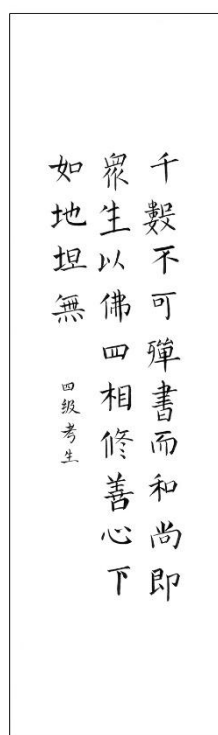 千數不可殫書而和尚即
衆生以佛四相修善心下
如地坦無
四级考生